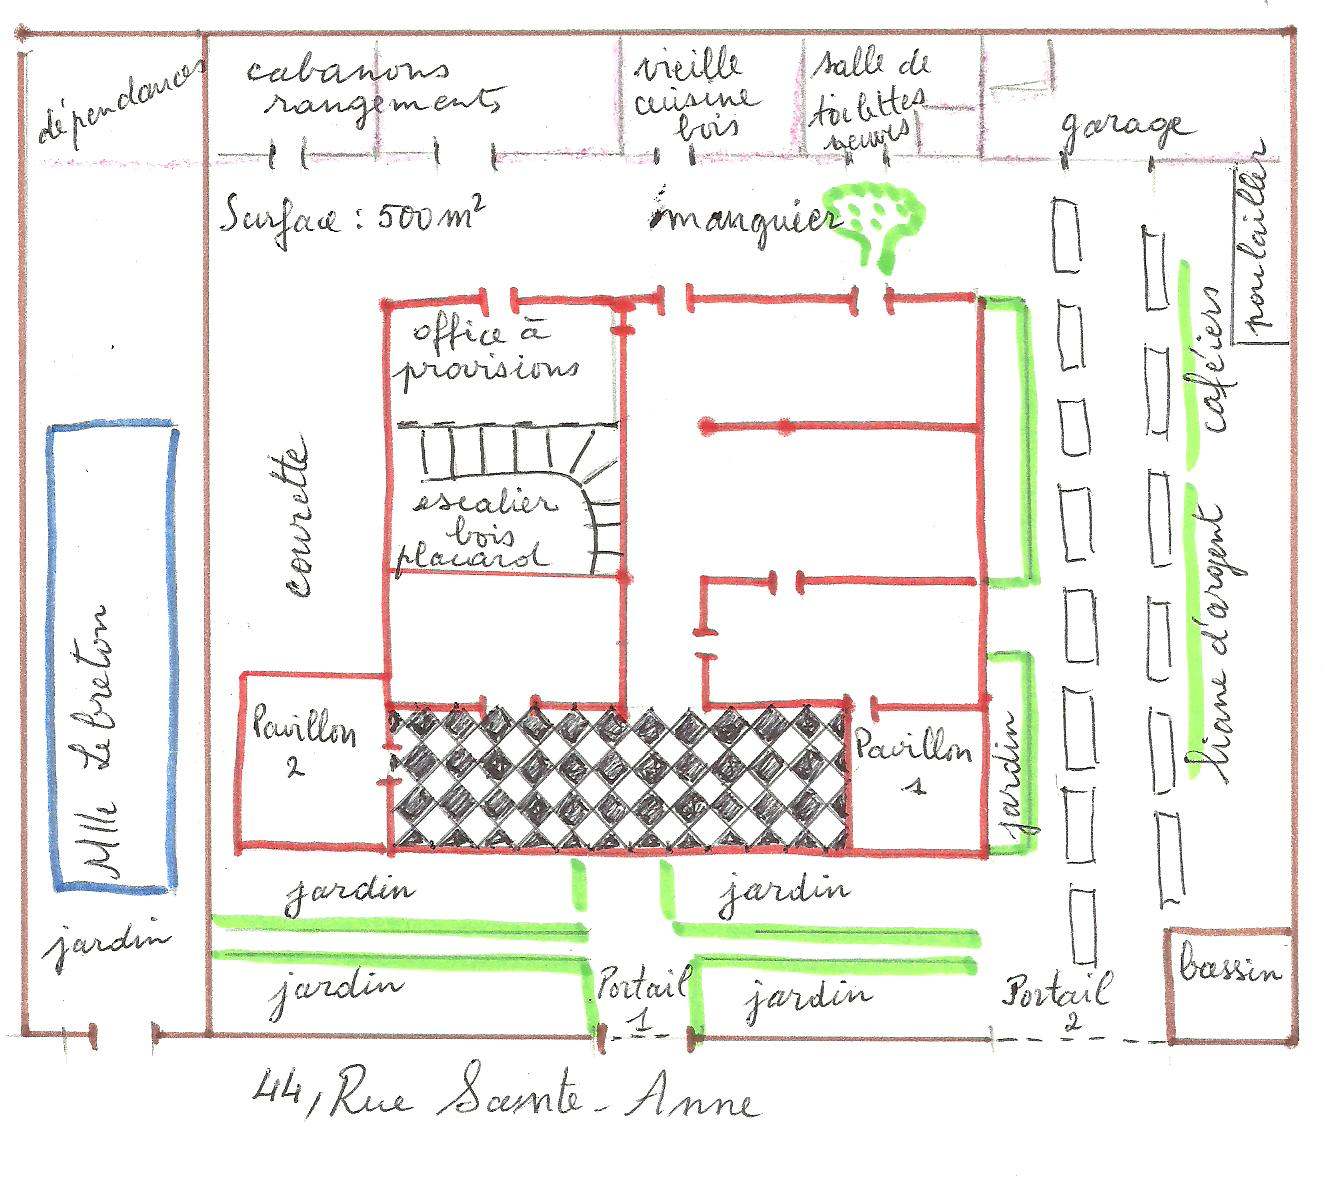 dépendances
cabanons
rangements
vieille
cuisine
bois
salle de
toilettes
garage
poulailler
Surface : 500 m²
manguier
office à
provisions
caféiers
courette
escalier
bois
placard
liane d'argent
Mlle Le breton
Pavillon
2
Pavillon
1
jardin
jardin
jardin
jardin
jardin
jardin
Portail
1
Portail
2
bassin
44, Rue Sainte-Anne